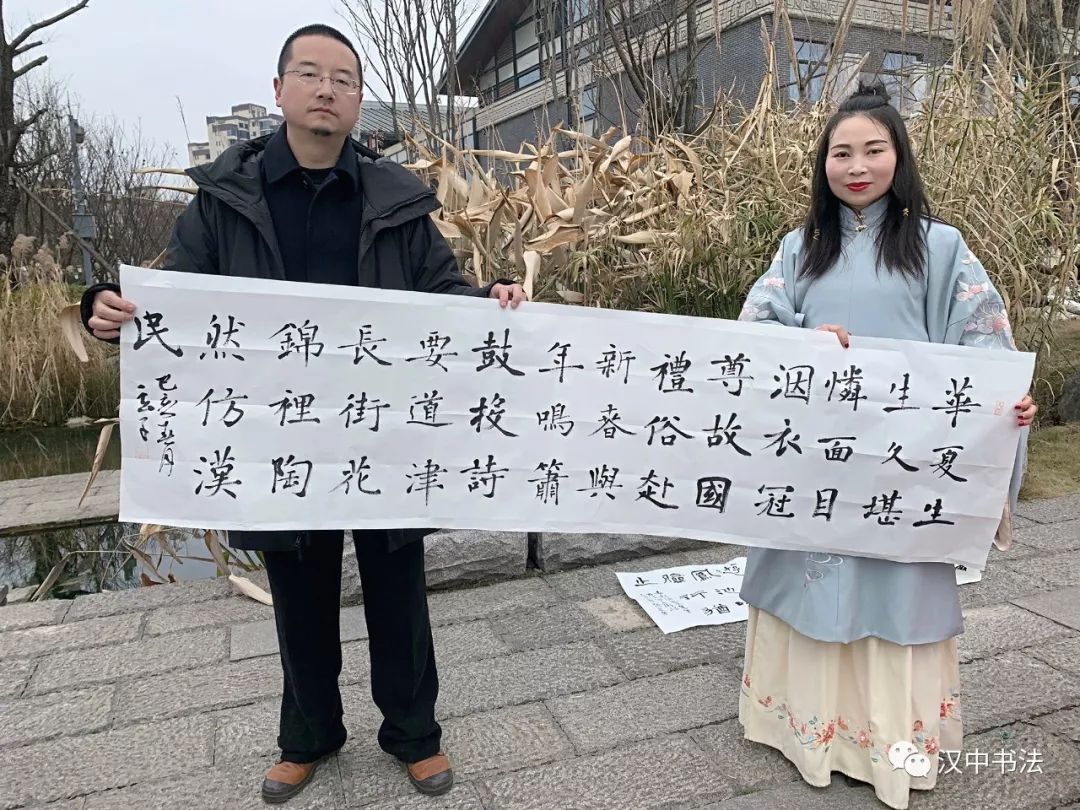 華夏生
生久堪
憐面目
洇衣冠
尊故國
禮俗赴
新春與
年鳴簫
鼓投詩
要道津
長街花
錦裡陶
然仿漢
民
己亥
汉中书法